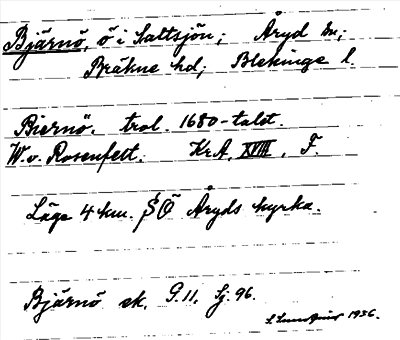 Bjärnö, ö i Saltsjön; Åryd sn;
Bräkne hd; Blekinge l.
Biernö. trol. 1680-talet.
W. v. Rosenfelt. KrA, XVIII, F.
Läge 4 km. SÖ Åryds kyrka.
Bjärnö ek. G. 11. Sj. 96.
1936.